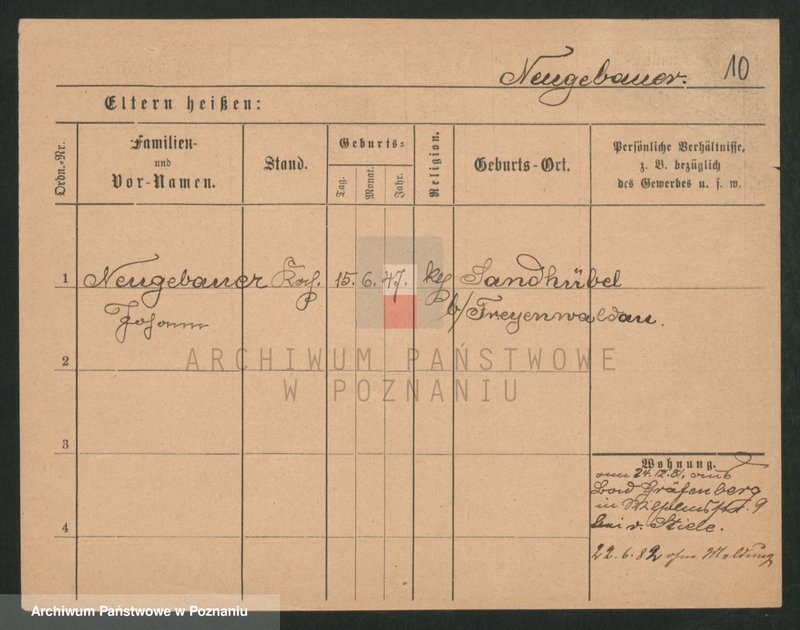 Neugebauer. 10
Eltern heißen:
Ordn.-Nr.
Familien-
und
Vor-Namen.
Stand.
Geburts-
Tag.
Monat.
Jahr.
Religion.
Geburts-Ort.
Persönliche Verhältnisse,
z. B. bezüglich
des Gewerbes u. s. w.
1 Neugebauer 15. 6. 47. kth Sandhübel
Johann b/Freyenwaldau.
2
ARCHIWUM PAŃSTWOWE
W POZNANIU
3
Wohnung.
24.12.81. aus
Bad Gräfenberg
in Wilhelmsstr. 9
bei v. Stiele.
4
22.6.82 ohne Meldung
Archiwum Państwowe w Poznaniu